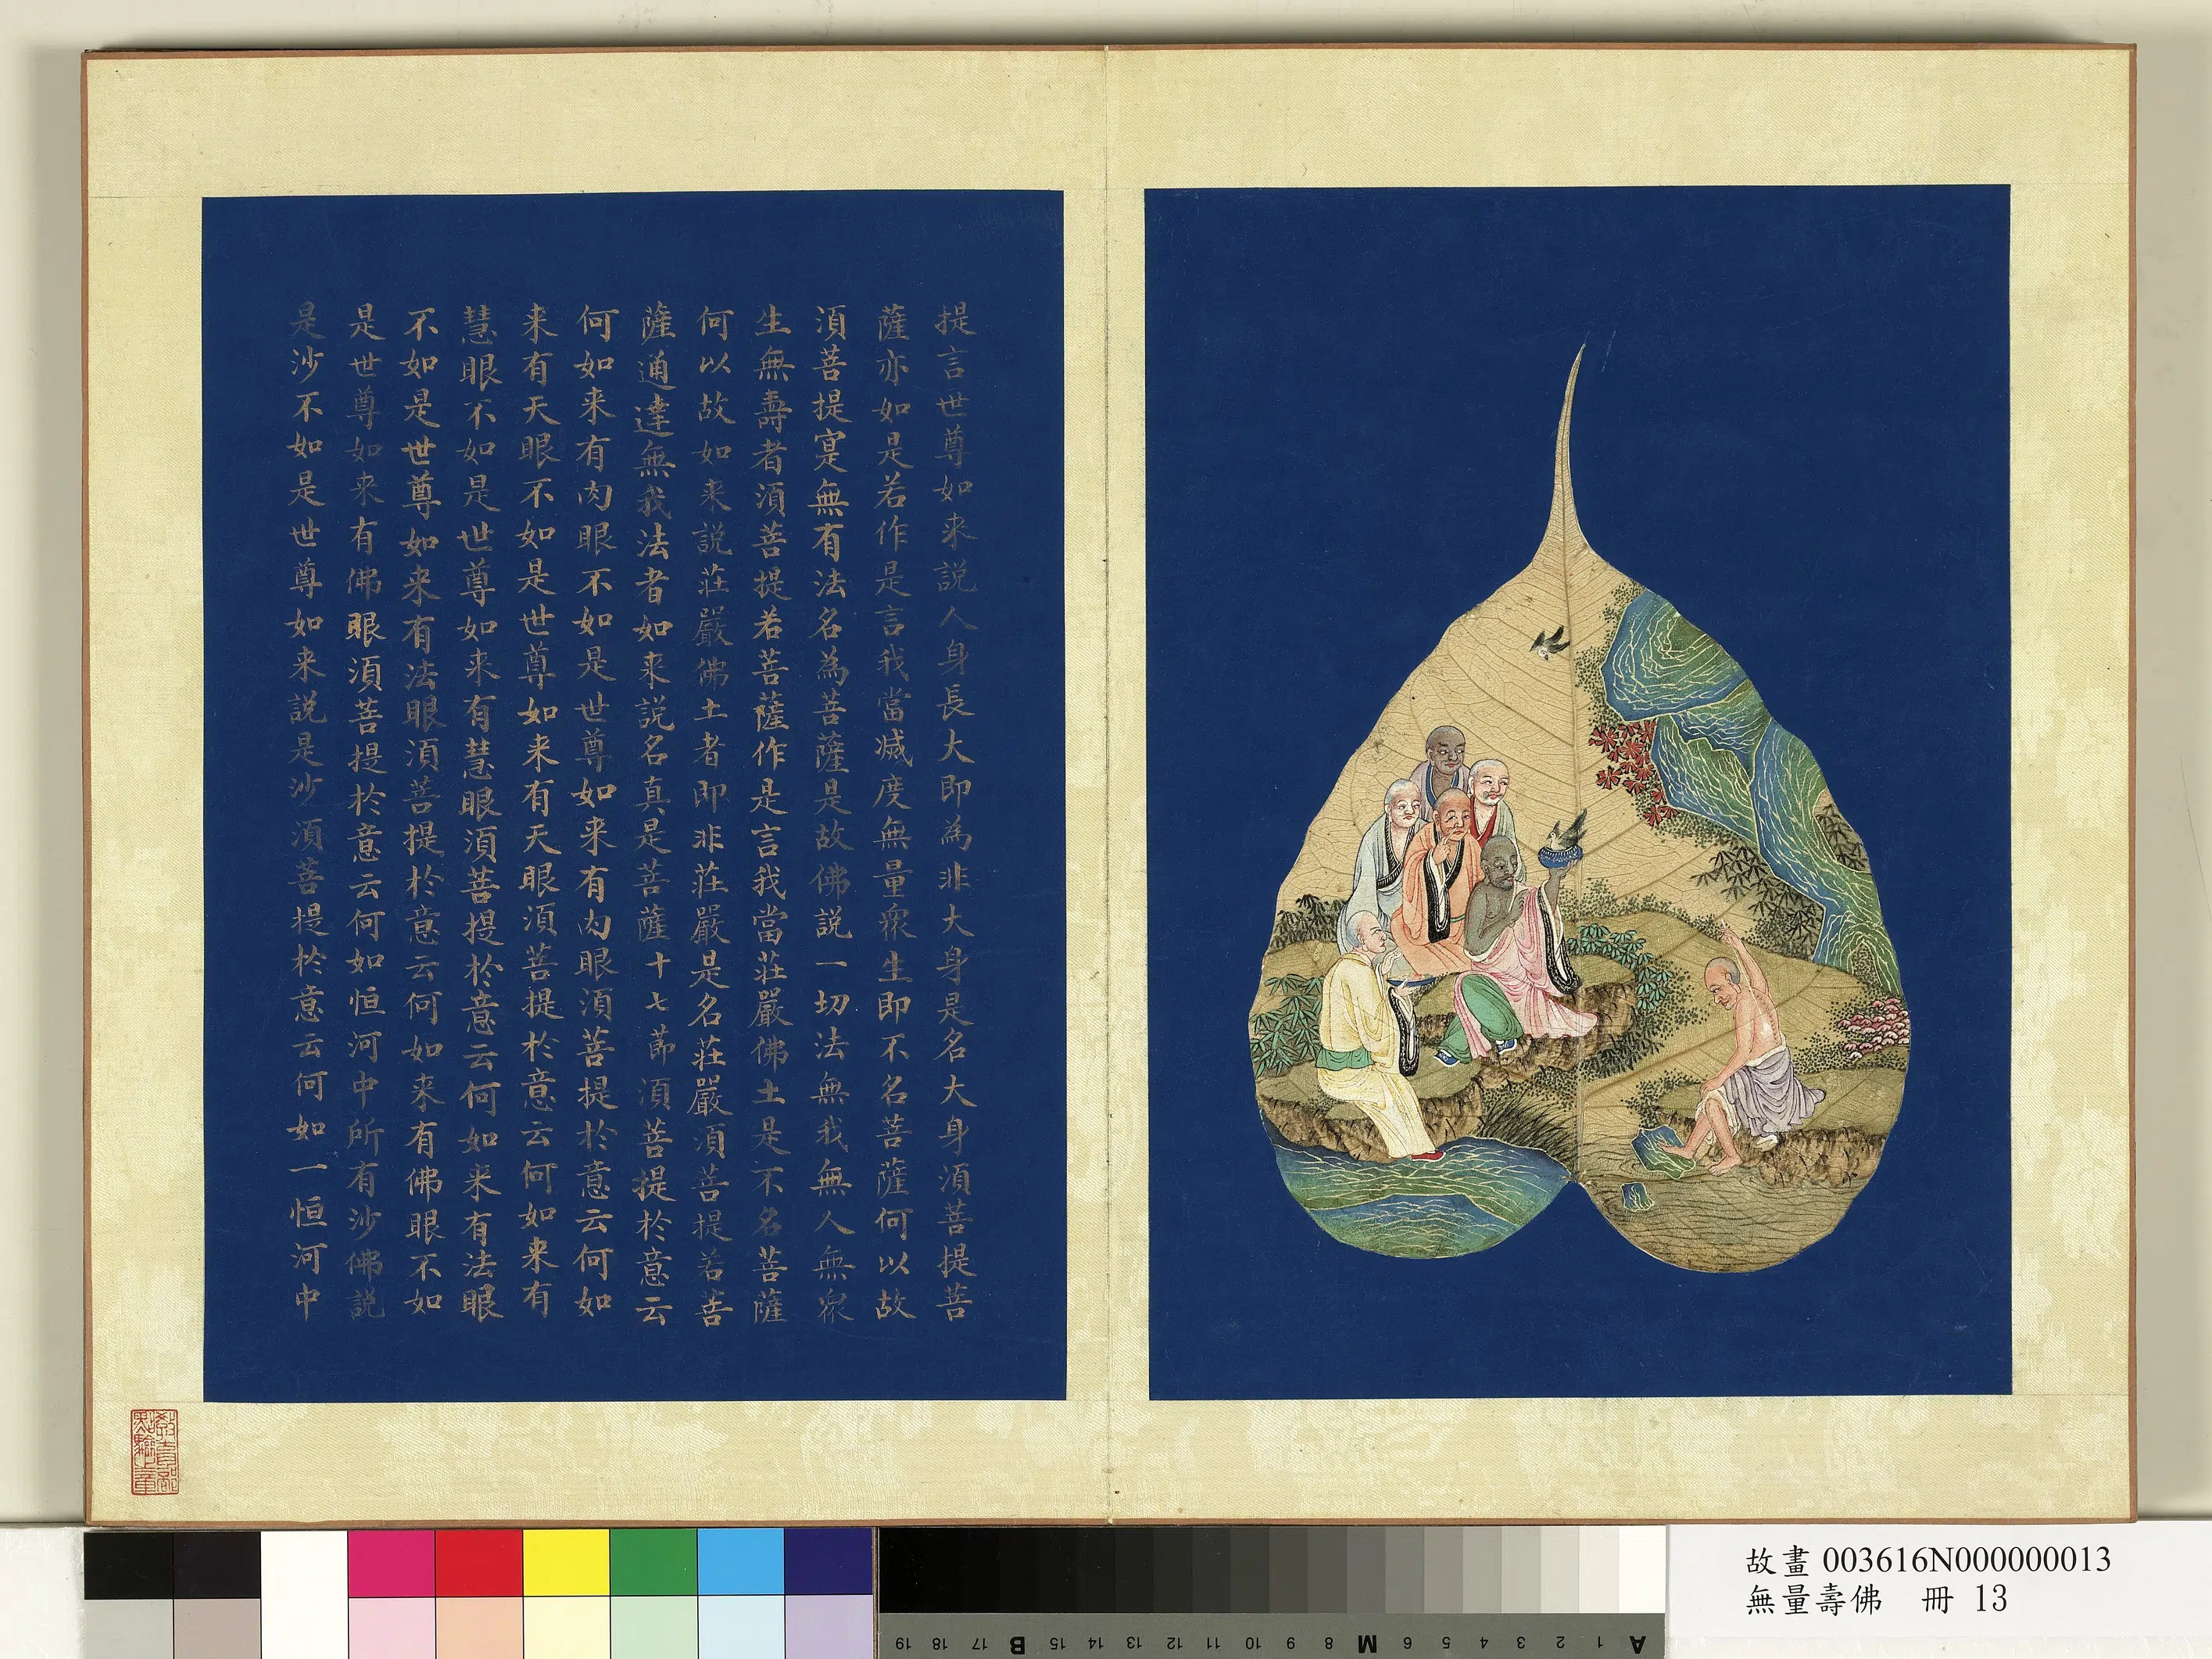 提言世尊如来説人身長大即為非大身是名大身湏菩提菩
薩亦如是若作是言我當滅度無量衆生即不名菩薩何以故
湏菩提寔無有法名為菩薩是故佛説一切法無我無人無衆
生無壽者湏菩提若菩薩作是言我當莊嚴佛土是不名菩薩
何以故如来説莊嚴佛土者即非莊嚴是名莊嚴湏菩提若菩
薩通達無我法者如来説名真是菩薩十七莭湏菩提於意云
何如来有肉眼不如是世尊如来有肉眼湏菩提於意云何如
来有天眼不如是世尊如来有天眼湏菩提於意云何如来有
慧眼不如是世尊如来有慧眼湏菩提於意云何如来有法眼
不如是世尊如来有法眼湏菩提於意云何如来有佛眼不如
是世尊如来有佛眼湏菩提於意云何如恒河中所有沙佛説
是沙不如是世尊如来説是沙湏菩提於意云何如一恒河中
故畫 003616N000000013
無量壽佛 冊 13
A 1 2 3 4 5 6 M 8 9 10 11 12 13 14 15 B 17 18 19